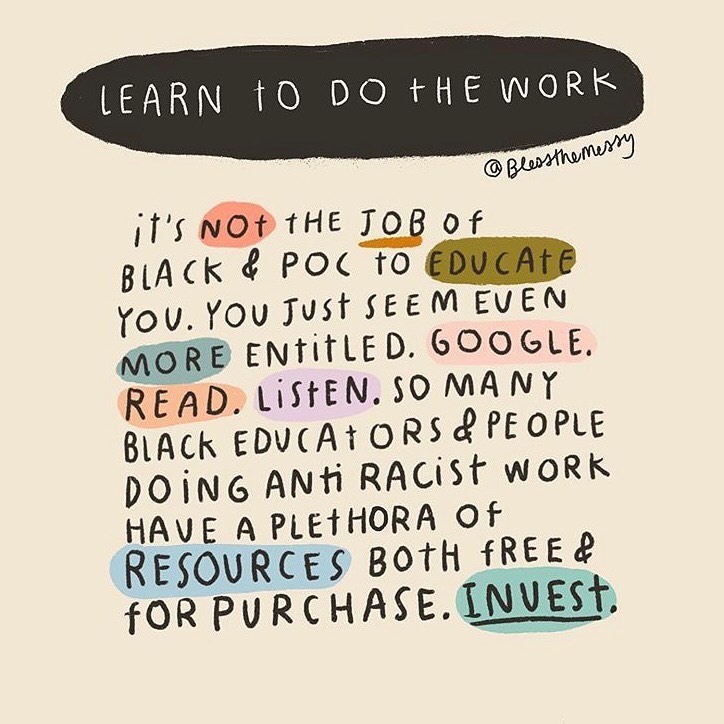 LEARN TO DO THE WORK
@Blessthemessy
it's NOt tHE JOB Of
BLACK & POC tO EDUCAtE
YOU. YOU JUSt SEEM EVEN
MORE ENtitLED. GOOGLE.
READ. LiStEN. SO MANY
BLACK EDUCAtORS & PEOPLE
DOiNG ANti RACiSt WORK
HAVE A PLEtHORA Of
RESOURCES BOtH fREE &
fOR PURCHASE. INVESt.